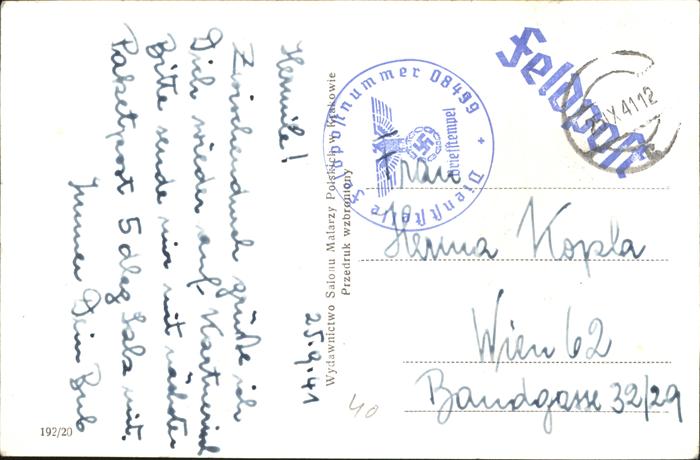 Hermile!
Zwischendurch grüße ich
Dich wieder auf
Bitte sende mir mit nächster
Paketpost 5 dkg Salz mit.
Immer Dein Bub
25.9.41
Wydawnictwo Salonu Malarzy Polskich w Krakowie
Przedruk wzbroniony
192/20
40
Feldpost
IX 41 12
Dienststelle Feldpostnummer 08499
Briefstempel
Frau
Herma Kopla
Wien 62
Bandgasse 32/29